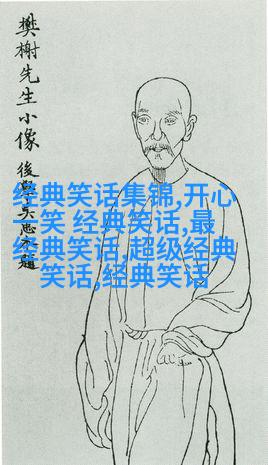 樊榭先生小像
後學題
经典笑话集锦,开心
一笑 经典笑话,最
经典笑话,超级经典
笑话,经典笑话